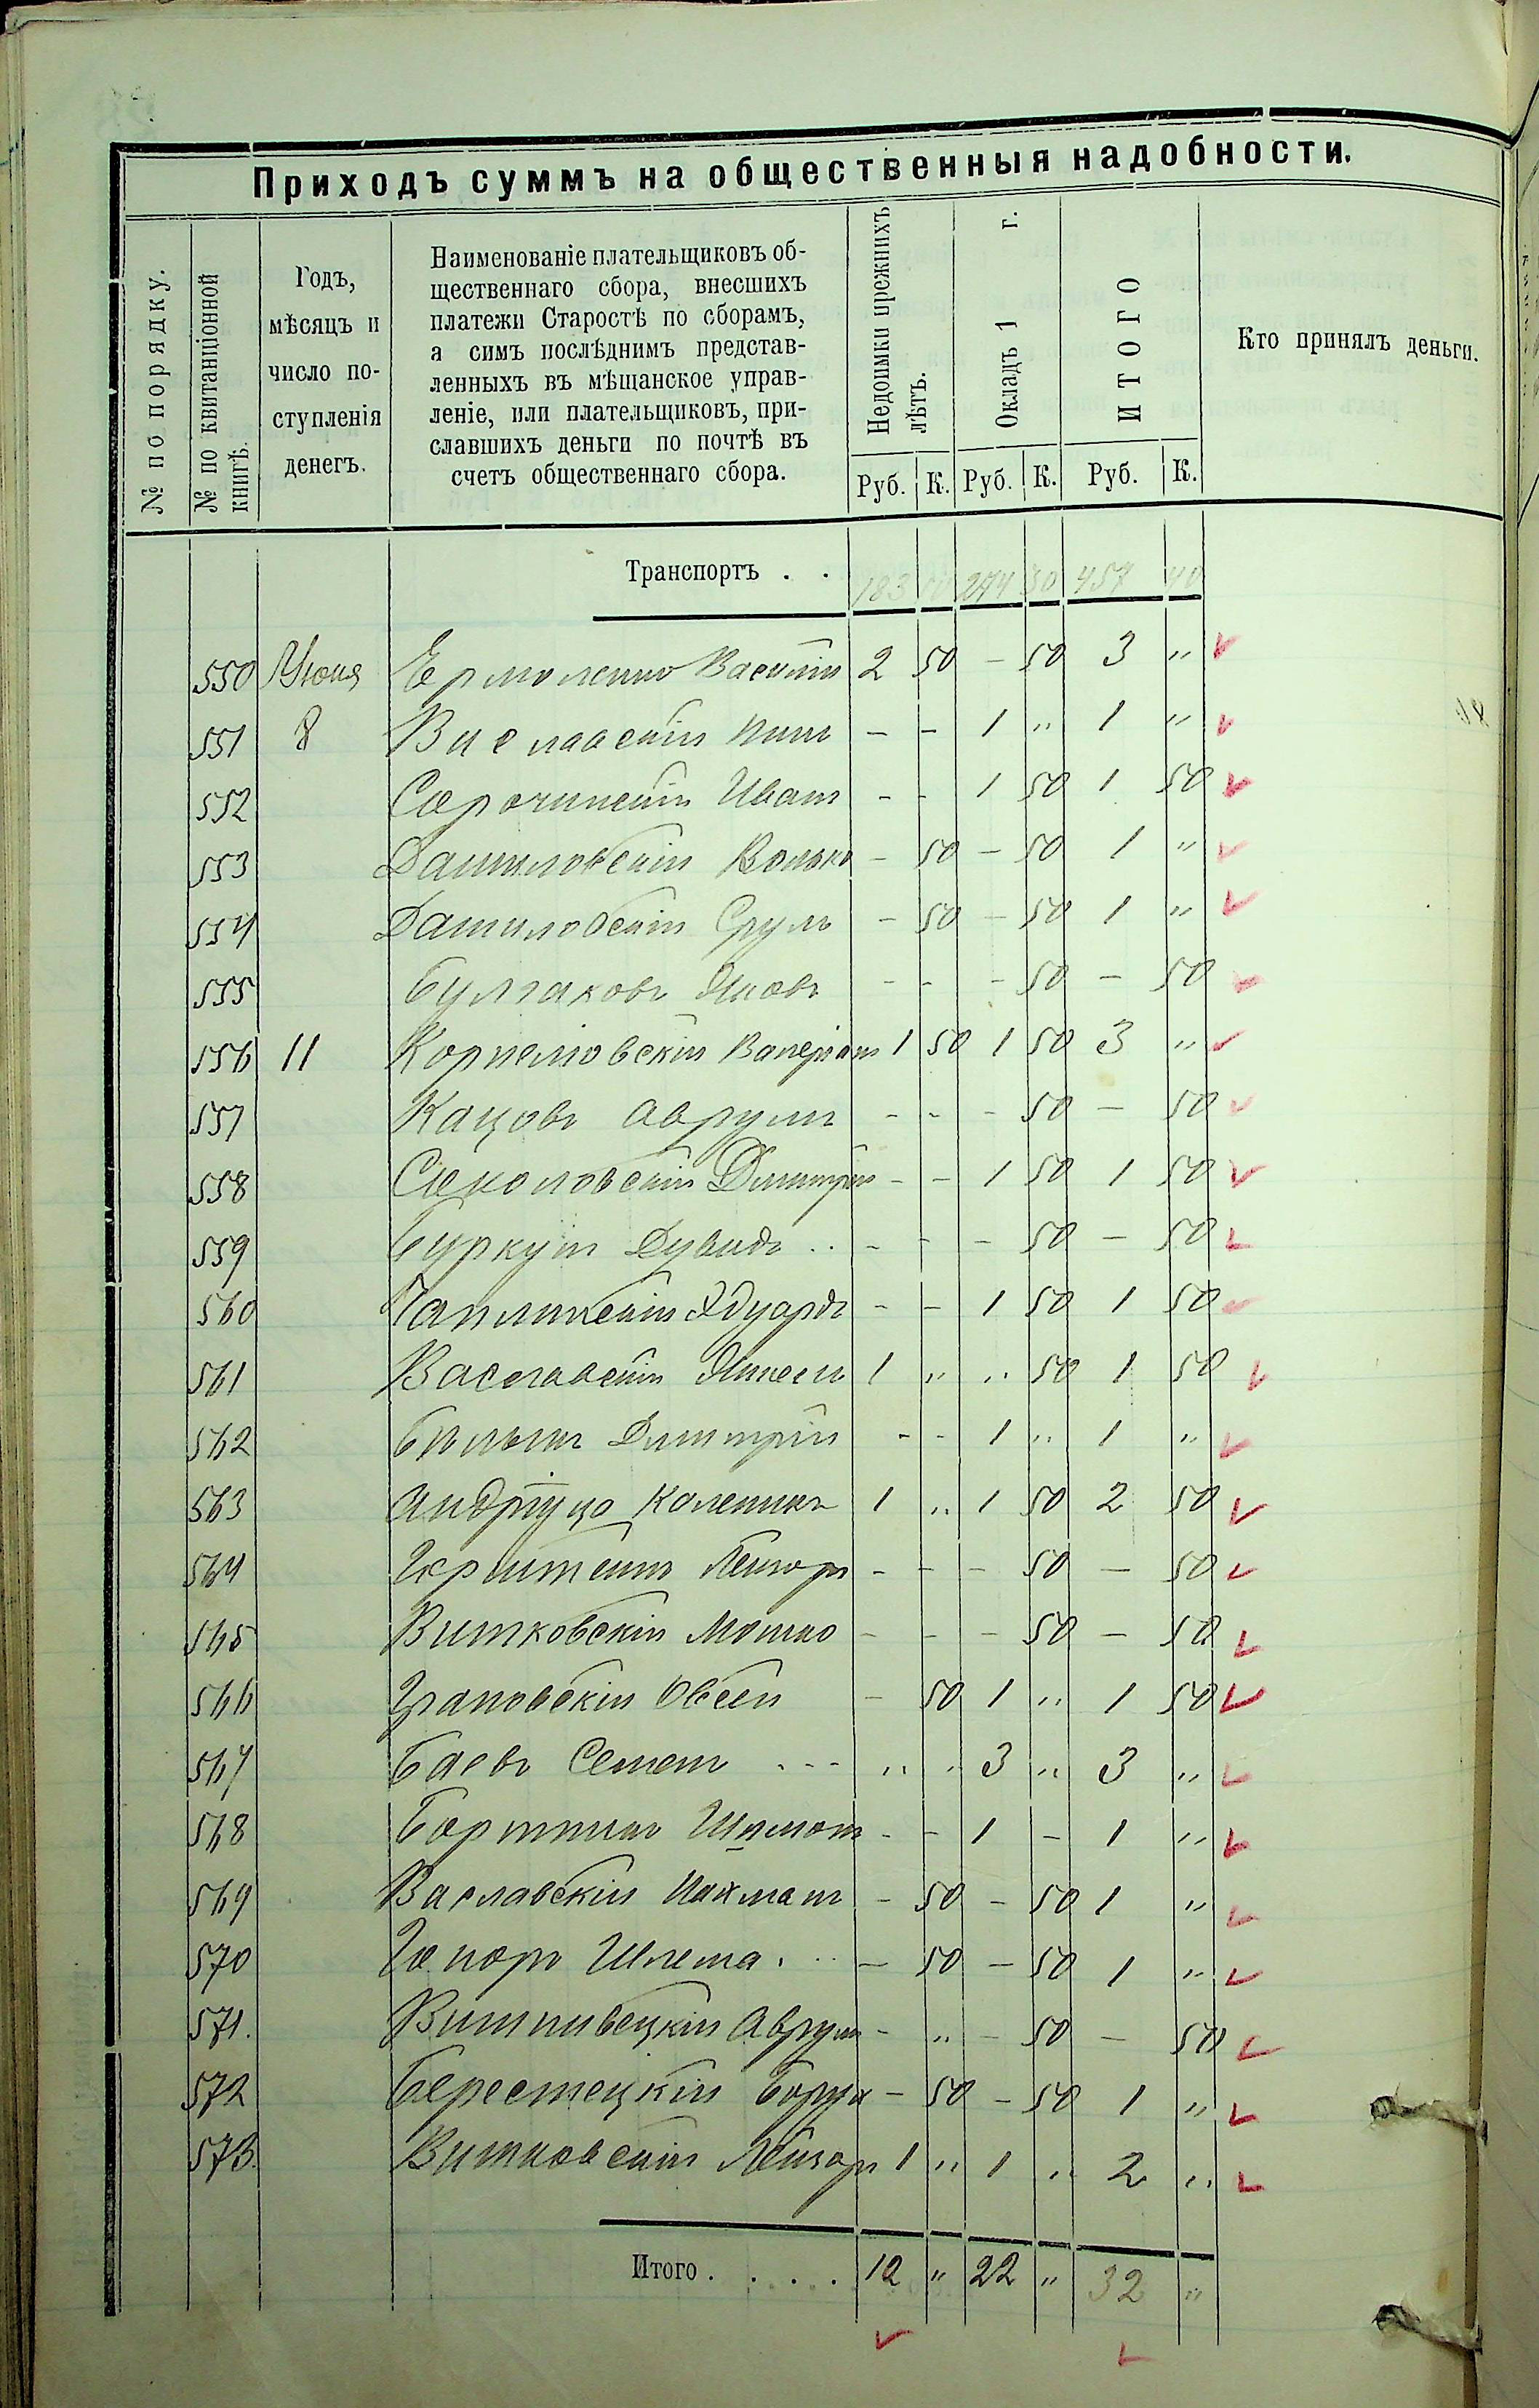 Приходъ суммъ на общественныя надобности.
№ по порядку.
№ по квитанціонной книгѣ.
Годъ,
мѣсяцъ и
число по-
ступленія
денегъ.
Наименованіе плательщиковъ об-
щественнаго сбора, внесшихъ
платежи Старостѣ по сборамъ,
а симъ послѣднимъ представ-
ленныхъ въ мѣщанское управ-
леніе, или плательщиковъ, при-
славшихъ деньги по почтѣ въ
счетъ общественнаго сбора.
Недоимки прежнихъ лѣтъ.
Окладъ 1 г.
ИТОГО
Кто принялъ деньги.
Руб. К. Руб. К. Руб. К.
Транспортъ . . 183 274 457 40
550 Июня Ермоленко Василій 2 50 - 50 3 "
551 8 Виславскій - - 1 " 1 "
552 Сорочинскій Иванъ - - 1 50 1 50
553 Даниловскій Волько - 50 - 50 1 "
554 Даниловскій Сруль - 50 - 50 1 "
555 Булгаковъ Яковъ - - - 50 - 50
556 11 Корнеліовскій Валеріанъ 1 50 1 50 3 "
557 Кацовъ Аврумъ - - - 50 - 50
558 Соколовскій Дмитрій - - 1 50 1 50
559 Буркутъ Дувидъ .. - - - 50 - 50
560 Чаплинскій Эдуардъ - - 1 50 1 50
561 Ваславскій 1 " .. 50 1 50
562 Дмитрій - - 1 " 1 "
563 Андріуцо Каленикъ 1 .. 1 50 2 50
564 Лейзоръ - - - 50 - 50
565 Витковскій Мошко - - - 50 - 50
566 Грановскій Овсей - 50 1 " 1 50
567 Баевъ Семенъ - - - " . 3 " 3 "
568 Бортникъ - - 1 - 1 "
569 Ваславскій Нахманъ - 50 - 50 1 "
570 Шлема . .. - 50 - 50 1 "
571. Вишнивецкій Аврумъ - " - 50 - 50
572 Берестецкій Борухъ - 50 - 50 1 "
573. Витковскій Лейзоръ 1 " 1 " 2 "
Итого . . . . 10 " 22 " 32 "